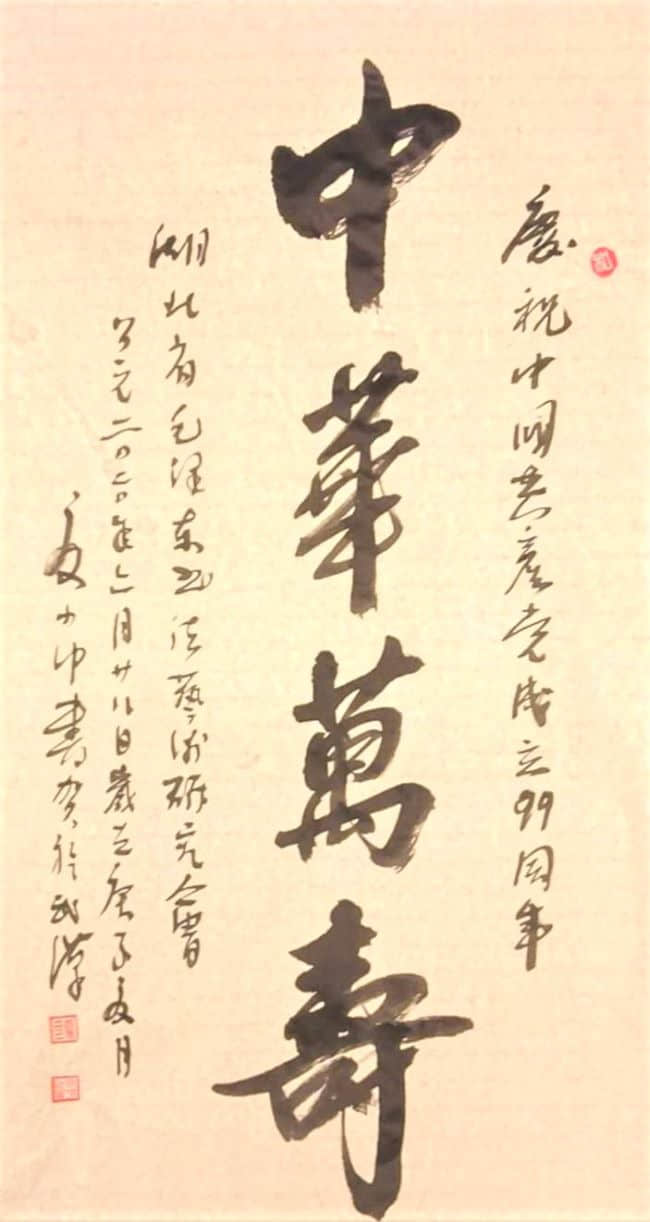 慶祝中国共產党成立99周年
中華萬壽
湖北省毛泽东书法藝術研究會
公元二〇二〇年六月廿八日歲在庚子夏月
夏小中書賀於武漢